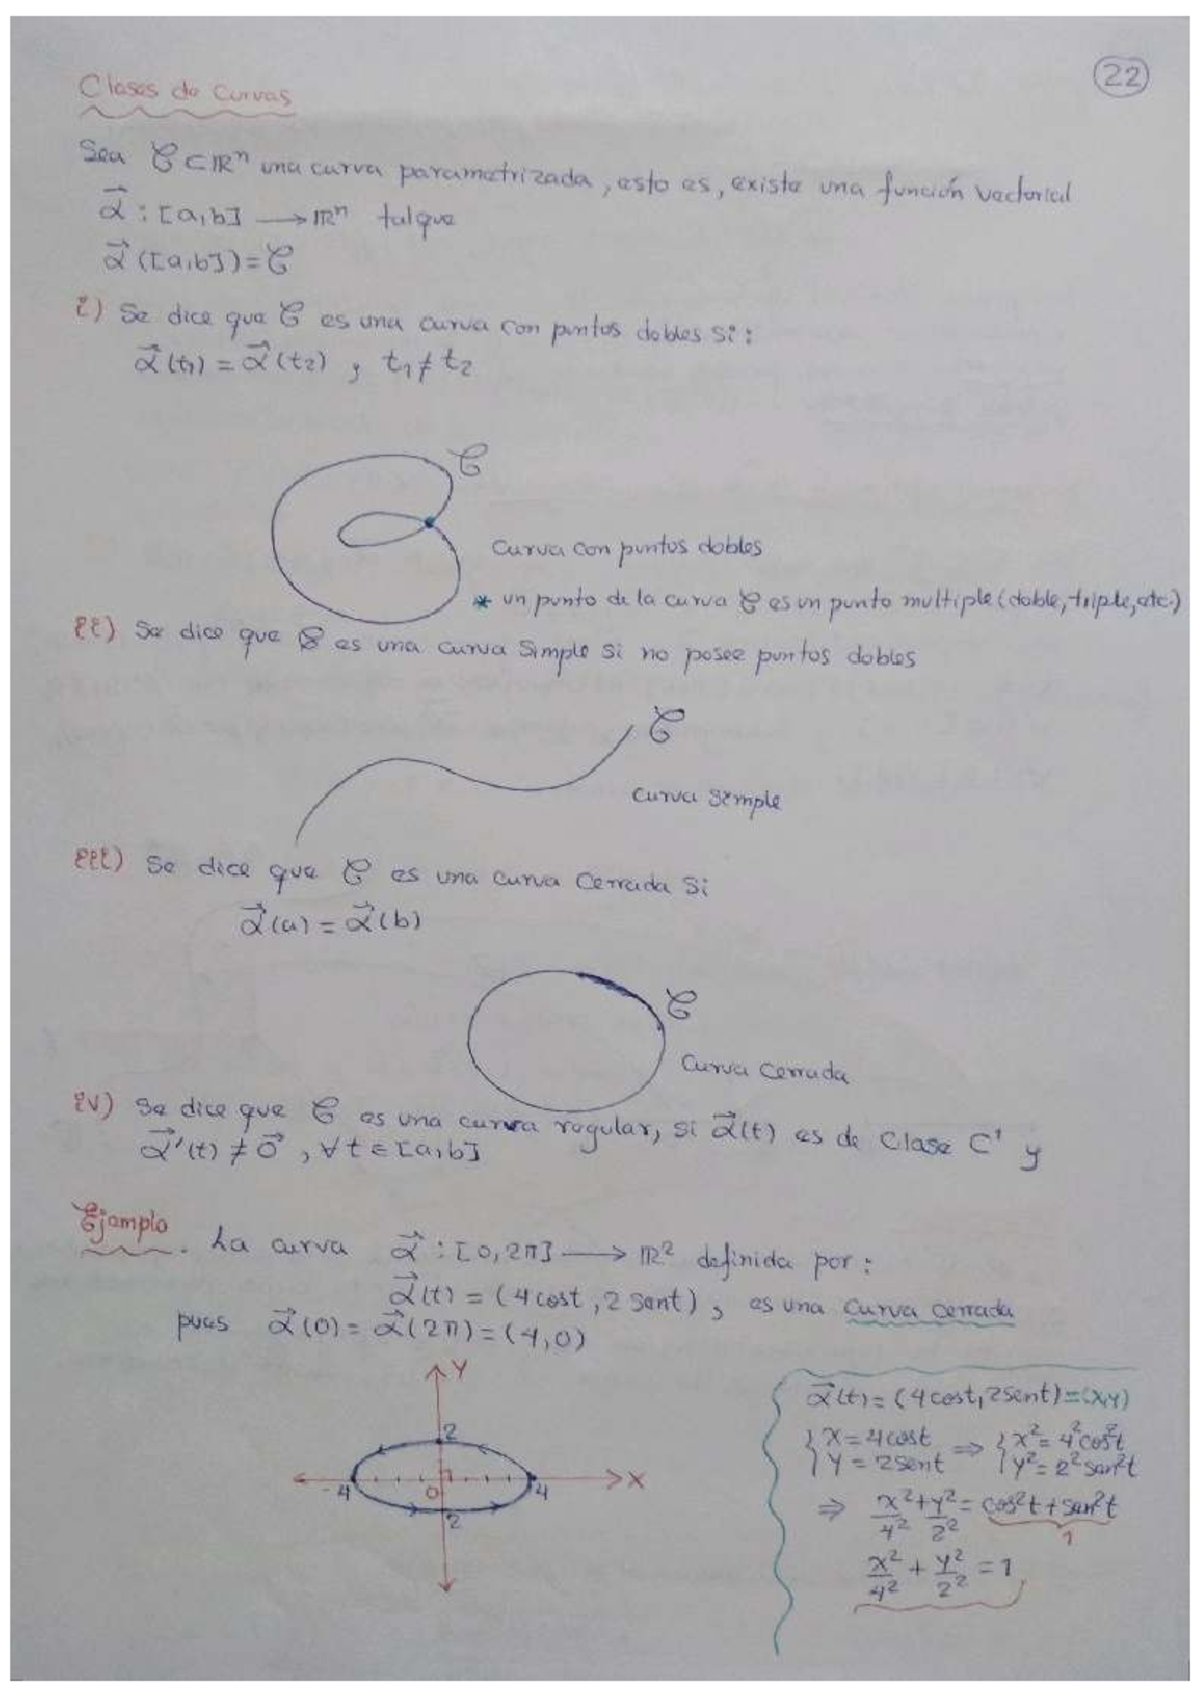 22
Clases de Curvas
Sea 𝒞 ⊂ ℝⁿ una curva parametrizada, esto es, existe una función vectorial
α⃗ : [a,b] → ℝⁿ talque
α⃗ ([a,b]) = 𝒞
i) Se dice que 𝒞 es una curva con puntos dobles si:
α⃗(t₁) = α⃗(t₂) , t₁ ≠ t₂
𝒞
Curva con puntos dobles
* un punto de la curva 𝒞 es un punto multiple (doble, triple, etc.)
ii) Se dice que 𝒞 es una curva Simple si no posee puntos dobles
𝒞
Curva simple
iii) Se dice que 𝒞 es una curva Cerrada si
α⃗(a) = α⃗(b)
𝒞
Curva Cerrada
iv) Se dice que 𝒞 es una curva regular, si α⃗(t) es de Clase C¹ y
α⃗'(t) ≠ 0⃗ , ∀ t ∈ [a,b]
Ejemplo. La curva α⃗ : [0,2π] → ℝ² definida por:
α⃗(t) = (4cost, 2sent), es una curva cerrada
pues α⃗(0) = α⃗(2π) = (4,0)
Y
2
-4 0 4 X
2
α⃗(t) = (4cost, 2sent) = (x,y)
{ x = 4cost ⇒ { x² = 4²cos²t
y = 2sent y² = 2²sen²t
⇒ x²/4² + y²/2² = cos²t + sen²t
1
x²/4² + y²/2² = 1